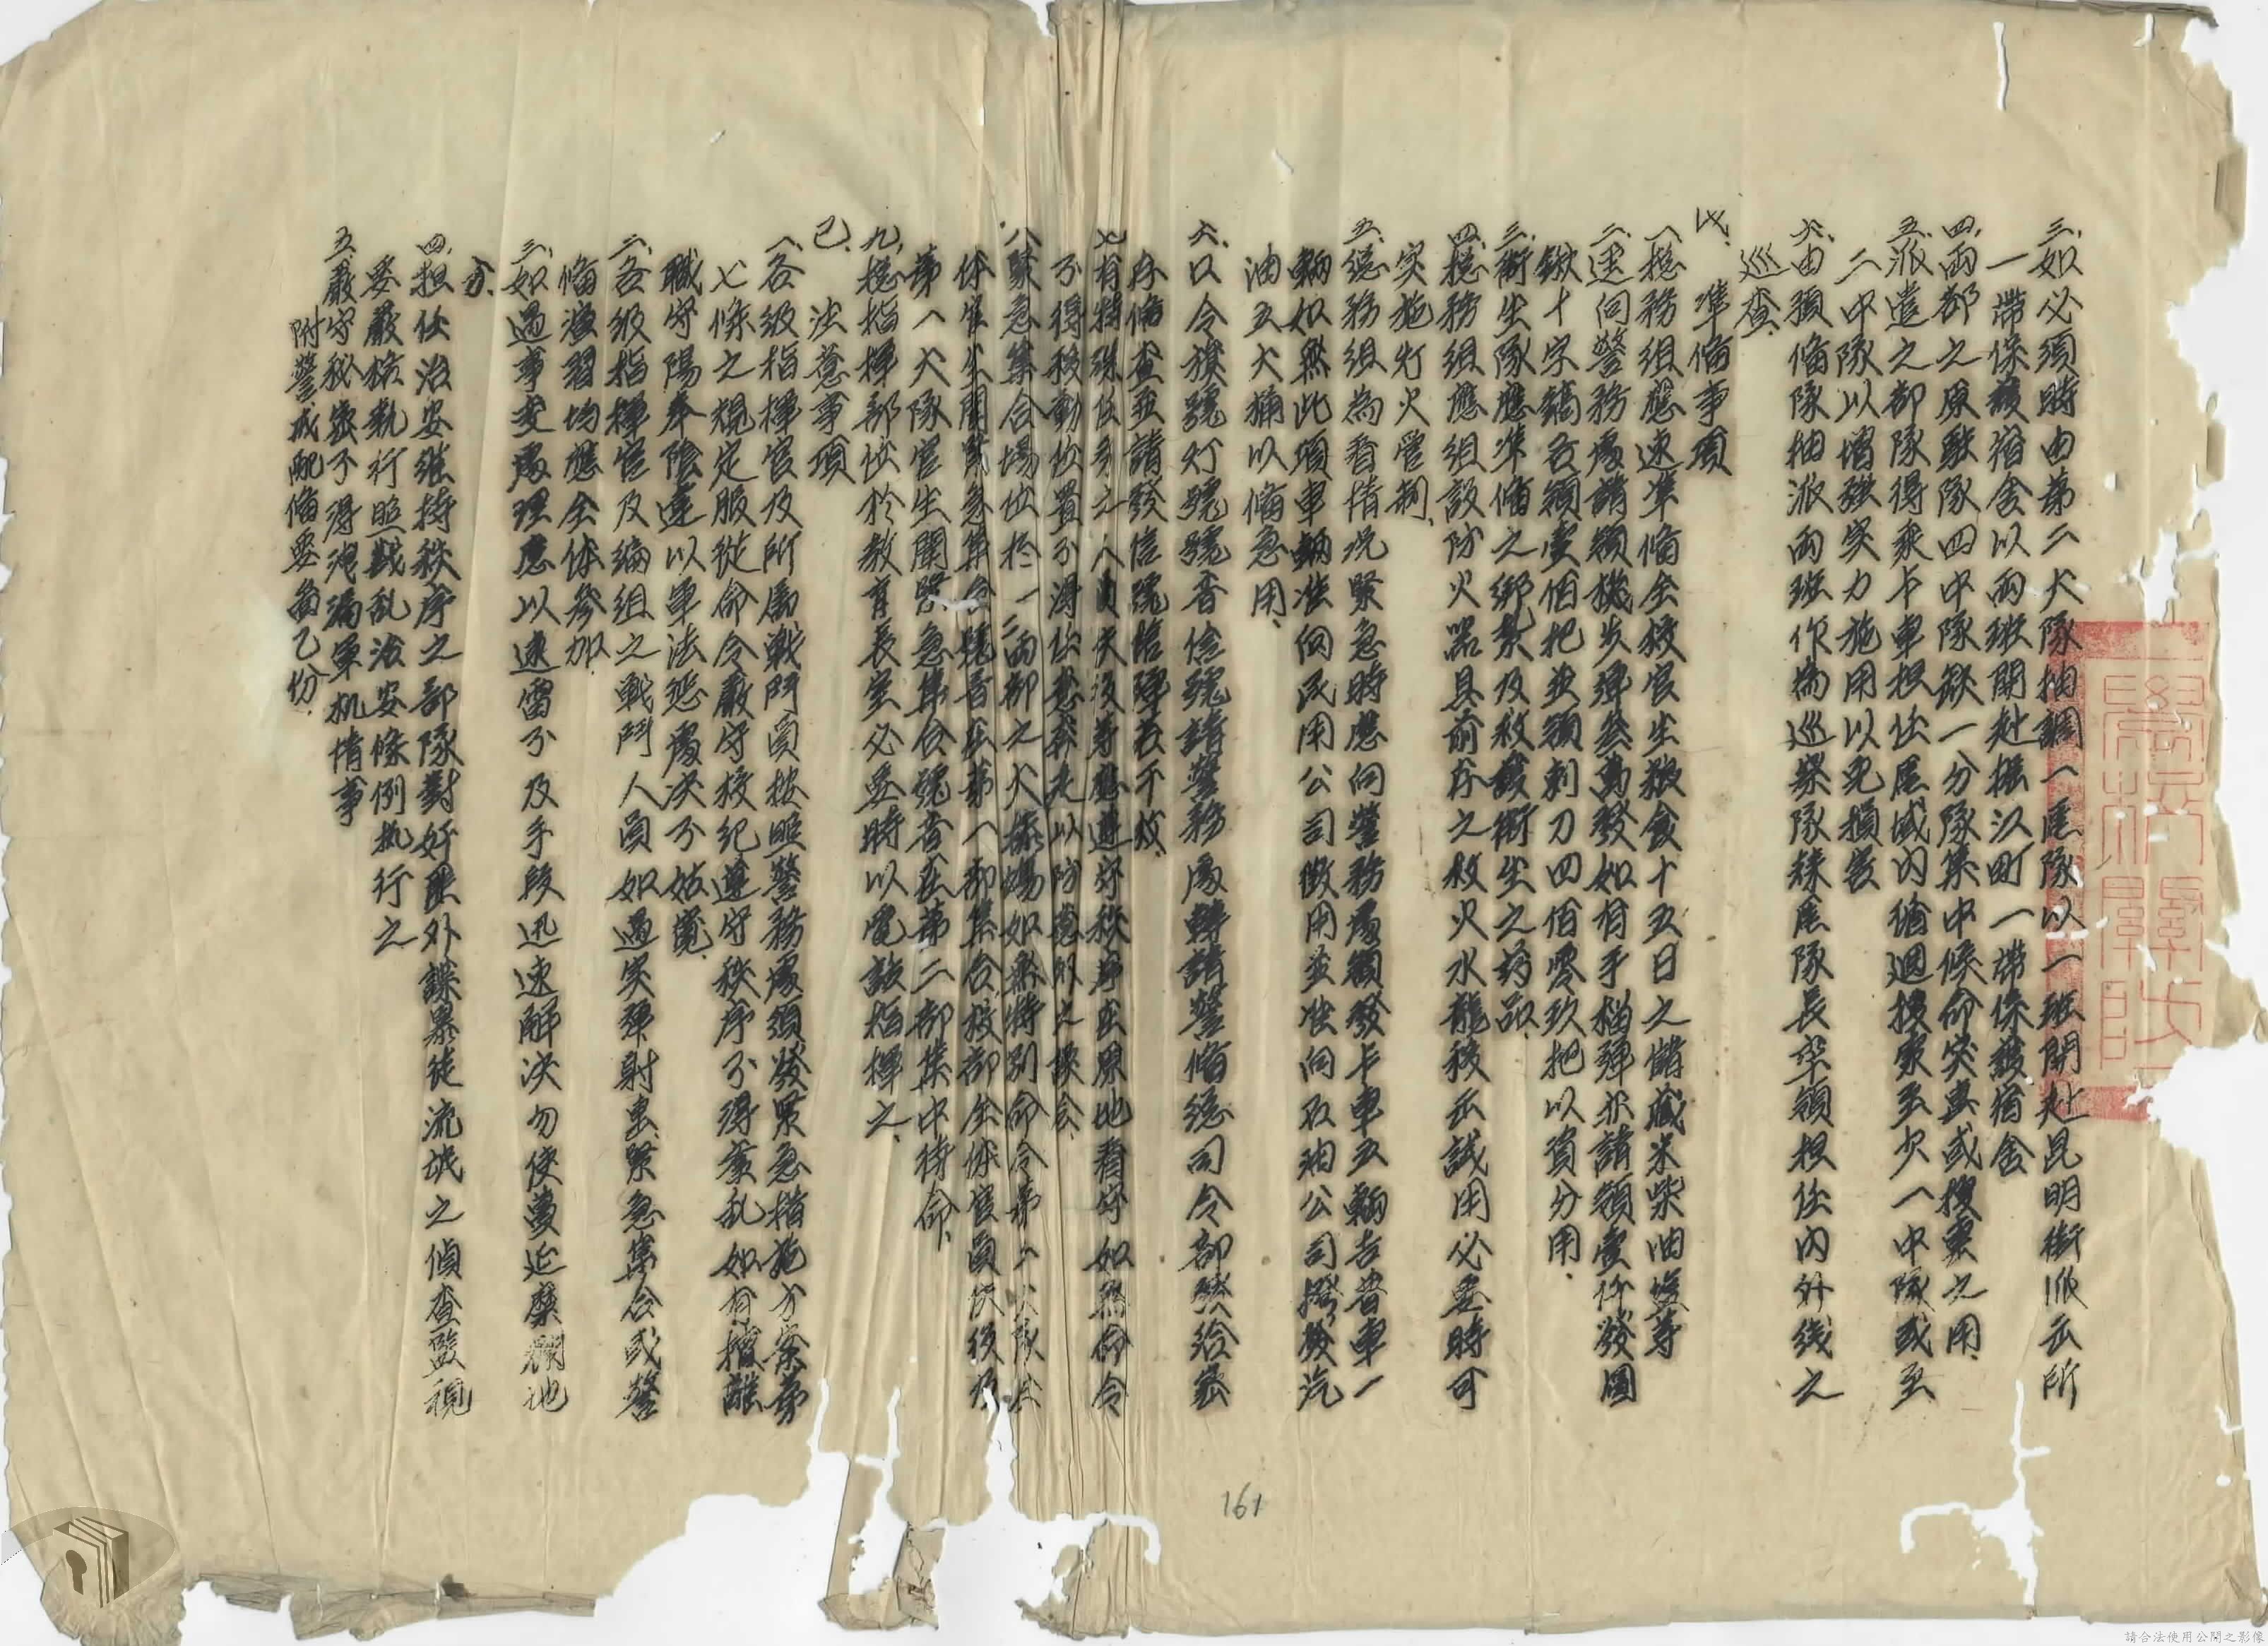 三、如必須時由第二大隊抽調一區隊以一班開赴昆明街派出所
一帶保護宿舍以兩班開赴振江町一帶保護宿舍
四、兩部之原駐隊四中隊欽一分隊集中候命突擊或搜索之用
五、派遣之部隊得乘卡車担任區域內循迴搜索至少一中隊或至
二中隊以增強实力施用以免損害
六、由預備隊抽派兩班作為巡察隊錄區隊長率領担任內外线之
巡查、
戊、準備事項
一、總務組應速準備全校官生粮食十五日之儲藏米柴油塩等
二、速向警務處請領機步彈叁萬發如有手榴彈亦請領壹仟發圓
鍬十字鎬各領壹佰把並領刺刀四佰零玖把以資分用、
三、衛生隊應準備之綁紮及救護衛生之葯品
四、總務組應組設防火器具前存之救火水龍移出試用必要時可
实施灯火管制、
五、總務組為香情況緊急時應向警務處領發卡車五輛吉普車一
輛如無此項車輛准向民用公司徵用並准向石油公司撥發汽
油五大桶以備急用、
六、以令旗號灯號號音信號請警務處轉請警備總司令部然給密
存備查並請發信號信彈若干枚、
七、有特殊任务之人員夫役等應遵守秩序在原地看守如無命令
不得移動位置不得任意奔走以防意外之誤会
八、緊急集合場位於一二兩部之大操場如無特別命令第一大隊長
第一大隊官生聞緊急集合號音在第二部集中待命、
九、總指揮部位於教育長室必要時以電話指揮之、
己、注意事項
一、各級指揮官及所屬戰鬥員按照警務處須發緊急措施方案第
七條之規定服從命令嚴守校紀遵守秩序不得紊乱如有擅離
職守陽奉陰違以軍法惩處決不姑寬、
二、各級指揮官及编組之戰鬥人員如遇实彈射擊緊急集合或警
備演習均應全体參加、
三、如遇事变處理應以速雷不及手段迅速解決勿使蔓延糜爛地
方、
四、担任治安維持秩序之部隊對奸匪外諜暴徒流氓之偵查監視
要嚴格執行照戡乱治安條例执行之
五、嚴守秘密不得洩漏軍机情事
附警戒配備要圖乙份、
161
請合法使用公開之影像